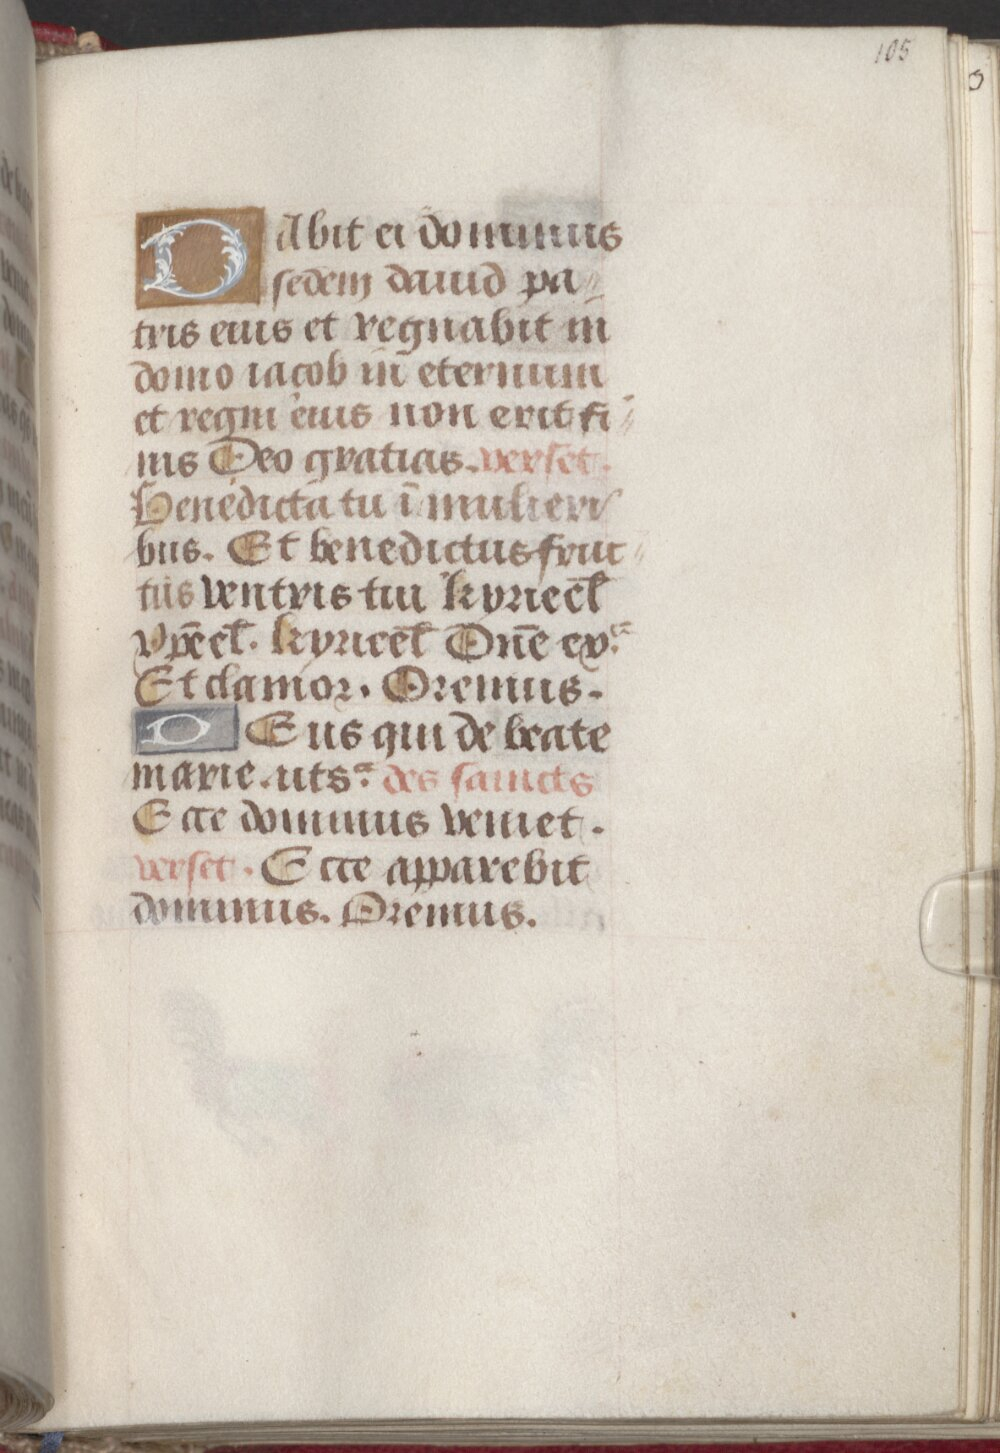 105
Dabit ei dominus
sedem dauid pa
tris eius et regnabit in
domo iacob in eternum
et regni eius non erit fi
nis Deo gratias. verset.
Benedicta tu ī mulieri
bus. Et benedictus fruc
tus ventris tui kyrieel̄
xp̄eel̄. kyrieel̄ Dn̄e ex.ᵃ
Et clamor. Oremus.
DEus qui de beate
marie. uts.ᵃ des saincts
Ecce dominus veniet.
verset. Ecce apparebit
dominus. Oremus.